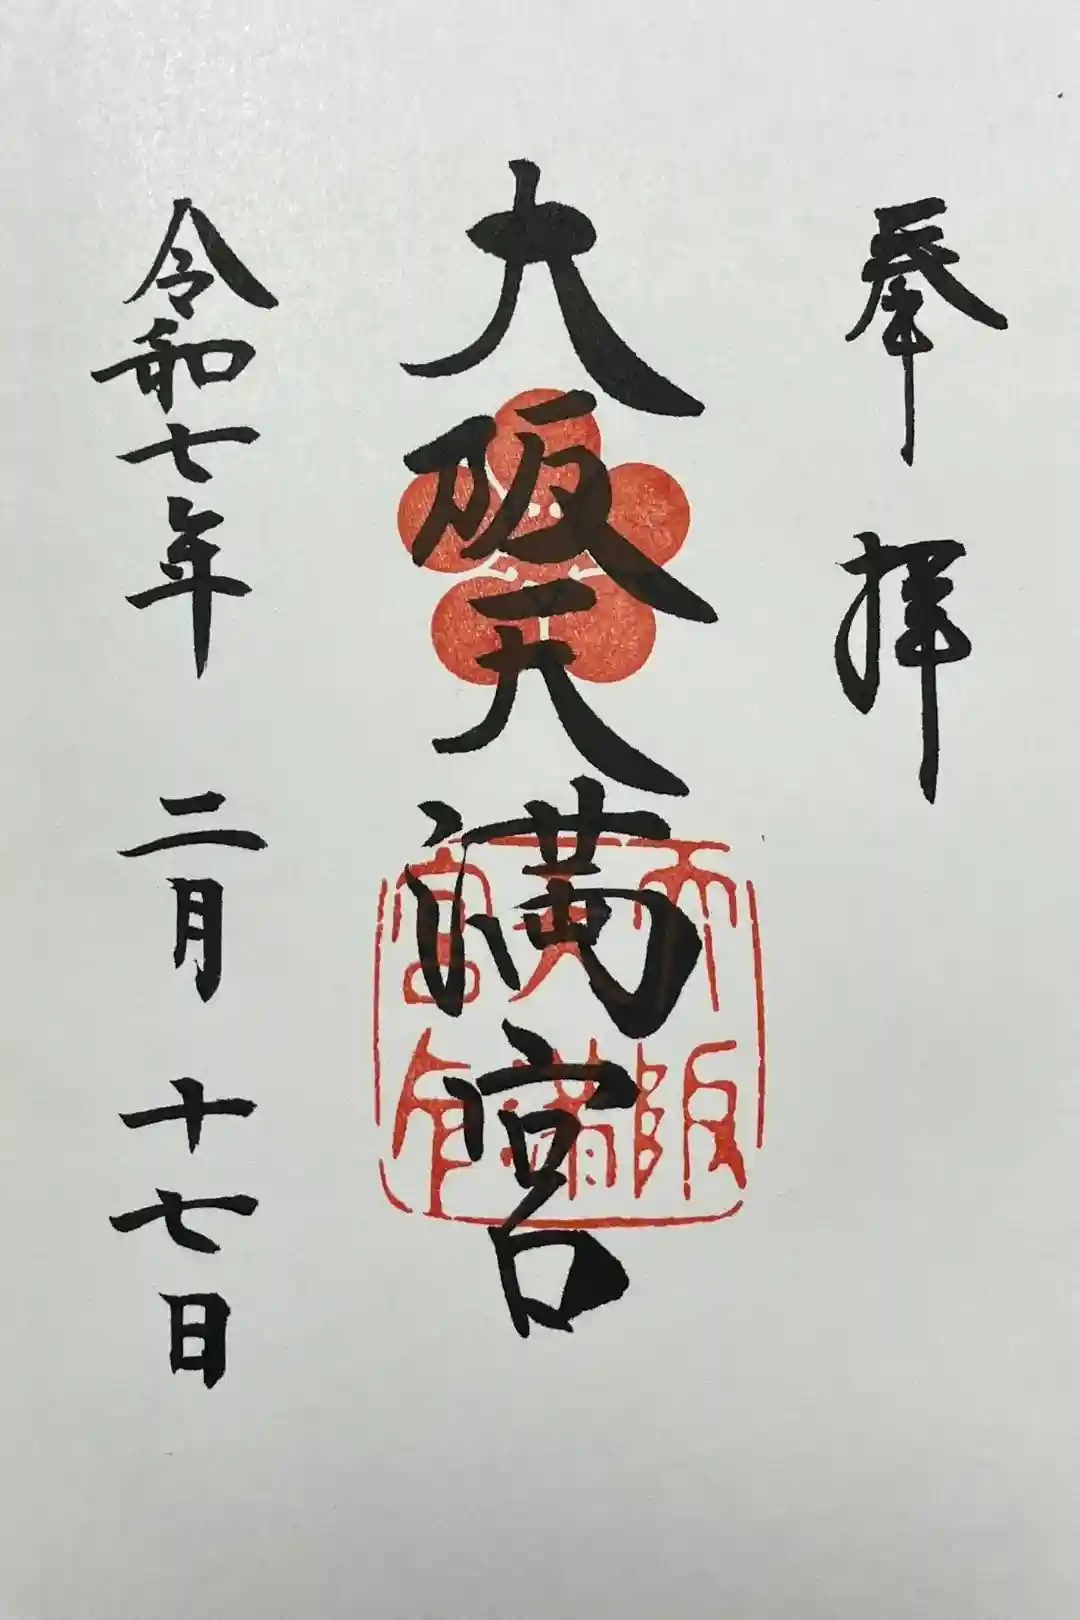 奉拝
大阪天満宮
大阪天満宮印
令和七年 二月 十七日